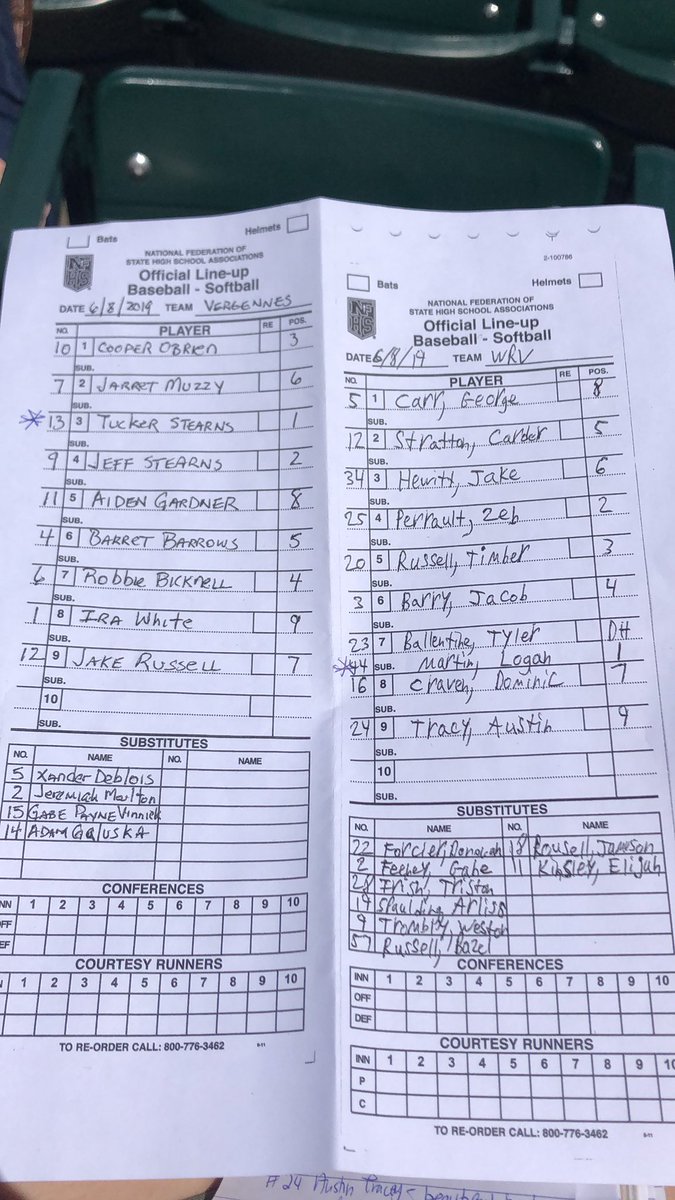 Bats Helmets
NFHS
NATIONAL FEDERATION OF
STATE HIGH SCHOOL ASSOCIATIONS
Official Line-up
Baseball - Softball
DATE 6/8/2019 TEAM VERGENNES
NO. PLAYER RE POS.
10 1 COOPER OBRIEN 3
SUB.
7 2 JARRET MUZZY 6
SUB.
*13 3 TUCKER STEARNS 1
SUB.
9 4 JEFF STEARNS 2
SUB.
11 5 AIDEN GARDNER 8
SUB.
4 6 BARRET BARROWS 5
SUB.
6 7 Robbie BICKNELL 4
SUB.
1 8 IRA White 9
SUB.
12 9 JAKE RUSSELL 7
SUB.
10
SUB.
SUBSTITUTES
NO. NAME NO. NAME
5 Xander Deblois
2 Jeremiah
15 GABE PAYNE Vinnick
14 ADAM GALUSKA
CONFERENCES
INN 1 2 3 4 5 6 7 8 9 10
OFF
DEF
COURTESY RUNNERS
1 2 3 4 5 6 7 8 9 10
TO RE-ORDER CALL: 800-776-3462
2-100786
Bats Helmets
NFHS
NATIONAL FEDERATION OF
STATE HIGH SCHOOL ASSOCIATIONS
Official Line-up
Baseball - Softball
DATE 6/8/19 TEAM WRV
NO. PLAYER RE POS.
5 1 Carr, George 8
SUB.
12 2 Stratton, Carder 5
SUB.
34 3 Hewitt, Jake 6
SUB.
25 4 Perrault, Zeb 2
SUB.
20 5 Russell, Timber 3
SUB.
3 6 Barry, Jacob 4
SUB.
23 7 Ballentine, Tyler DH
*44 SUB. Martin, Logan 1
16 8 Craven, Dominic 7
SUB.
24 9 Tracy, Austin 9
SUB.
10
SUB.
SUBSTITUTES
NO. NAME NO. NAME
22 Forcier, Donovan 18 Rousell, Jameson
2 Feeney, Gabe 11 Kinsley, Elijah
28 Irish, Triston
19 Spaulding, Arliss
9 Trombly, Weston
57 Russell,
CONFERENCES
INN 1 2 3 4 5 6 7 8 9 10
OFF
DEF
COURTESY RUNNERS
INN 1 2 3 4 5 6 7 8 9 10
P
C
TO RE-ORDER CALL: 800-776-3462
#24 Austin Tracy -